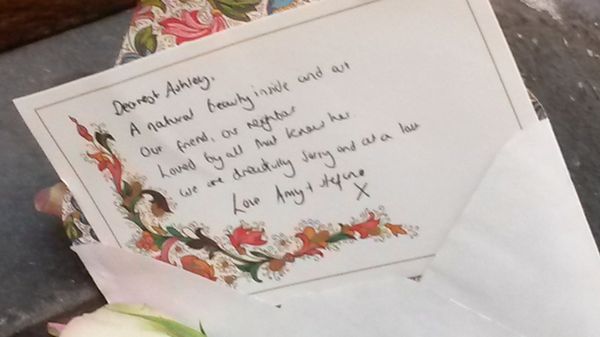 Dearest Ashley,
A natural beauty inside and out
Our friend, our neighbor
Loved by all that knew her.
we are dreadfully sorry and at a loss
Love Amy + Stefano
X